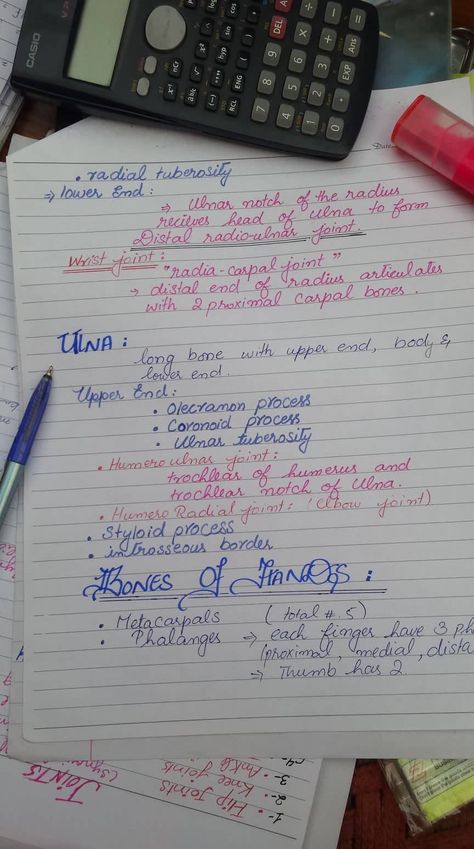 CASIO
DEL
AC
hyp
sin
cos
ENG
RCL
7 8 9
4 5 6
1 2 3
0 . EXP Ans
Date
• radial tuberosity
⇒ lower End :
⇒ Ulnar notch of the radius
recieves head of ulna to form
Distal radio-ulnar joint.
Wrist joint : "radia-carpal joint"
→ distal end of radius articulates
with 2 proximal carpal bones.
ULNA :
long bone with upper end, body &
lower end.
Upper End :
• Olecramon process
• Coronoid process
• Ulnar tuberosity
• Humero ulnar joint :
trochlear of humerus and
trochlear notch of Ulna.
• Humero Radial joint : (Elbow joint)
• Styloid process
• introsseous border
BONES OF HANDS :
• Metacarpals (total # 5)
• Phalanges → each finger have 3 ph
(proximal, medial, dista
⇒ Thumb has 2.
JOINTS
1- Hip Joints
2- Knee Joints
3- Ankle Joints